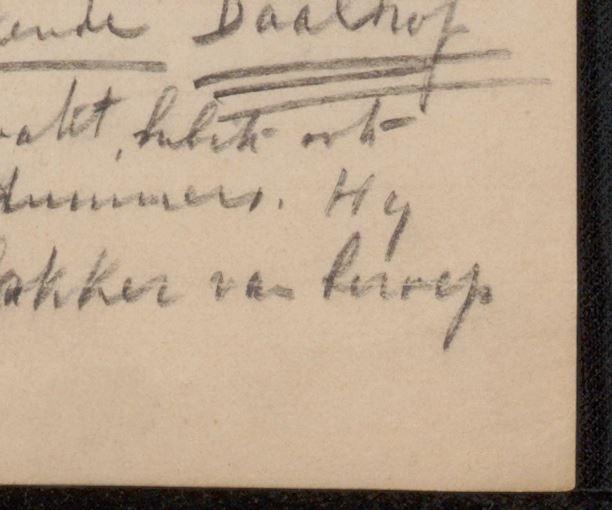 ende Daalhof
akt, heb ik ook
dummers. Hy
akker van beroep